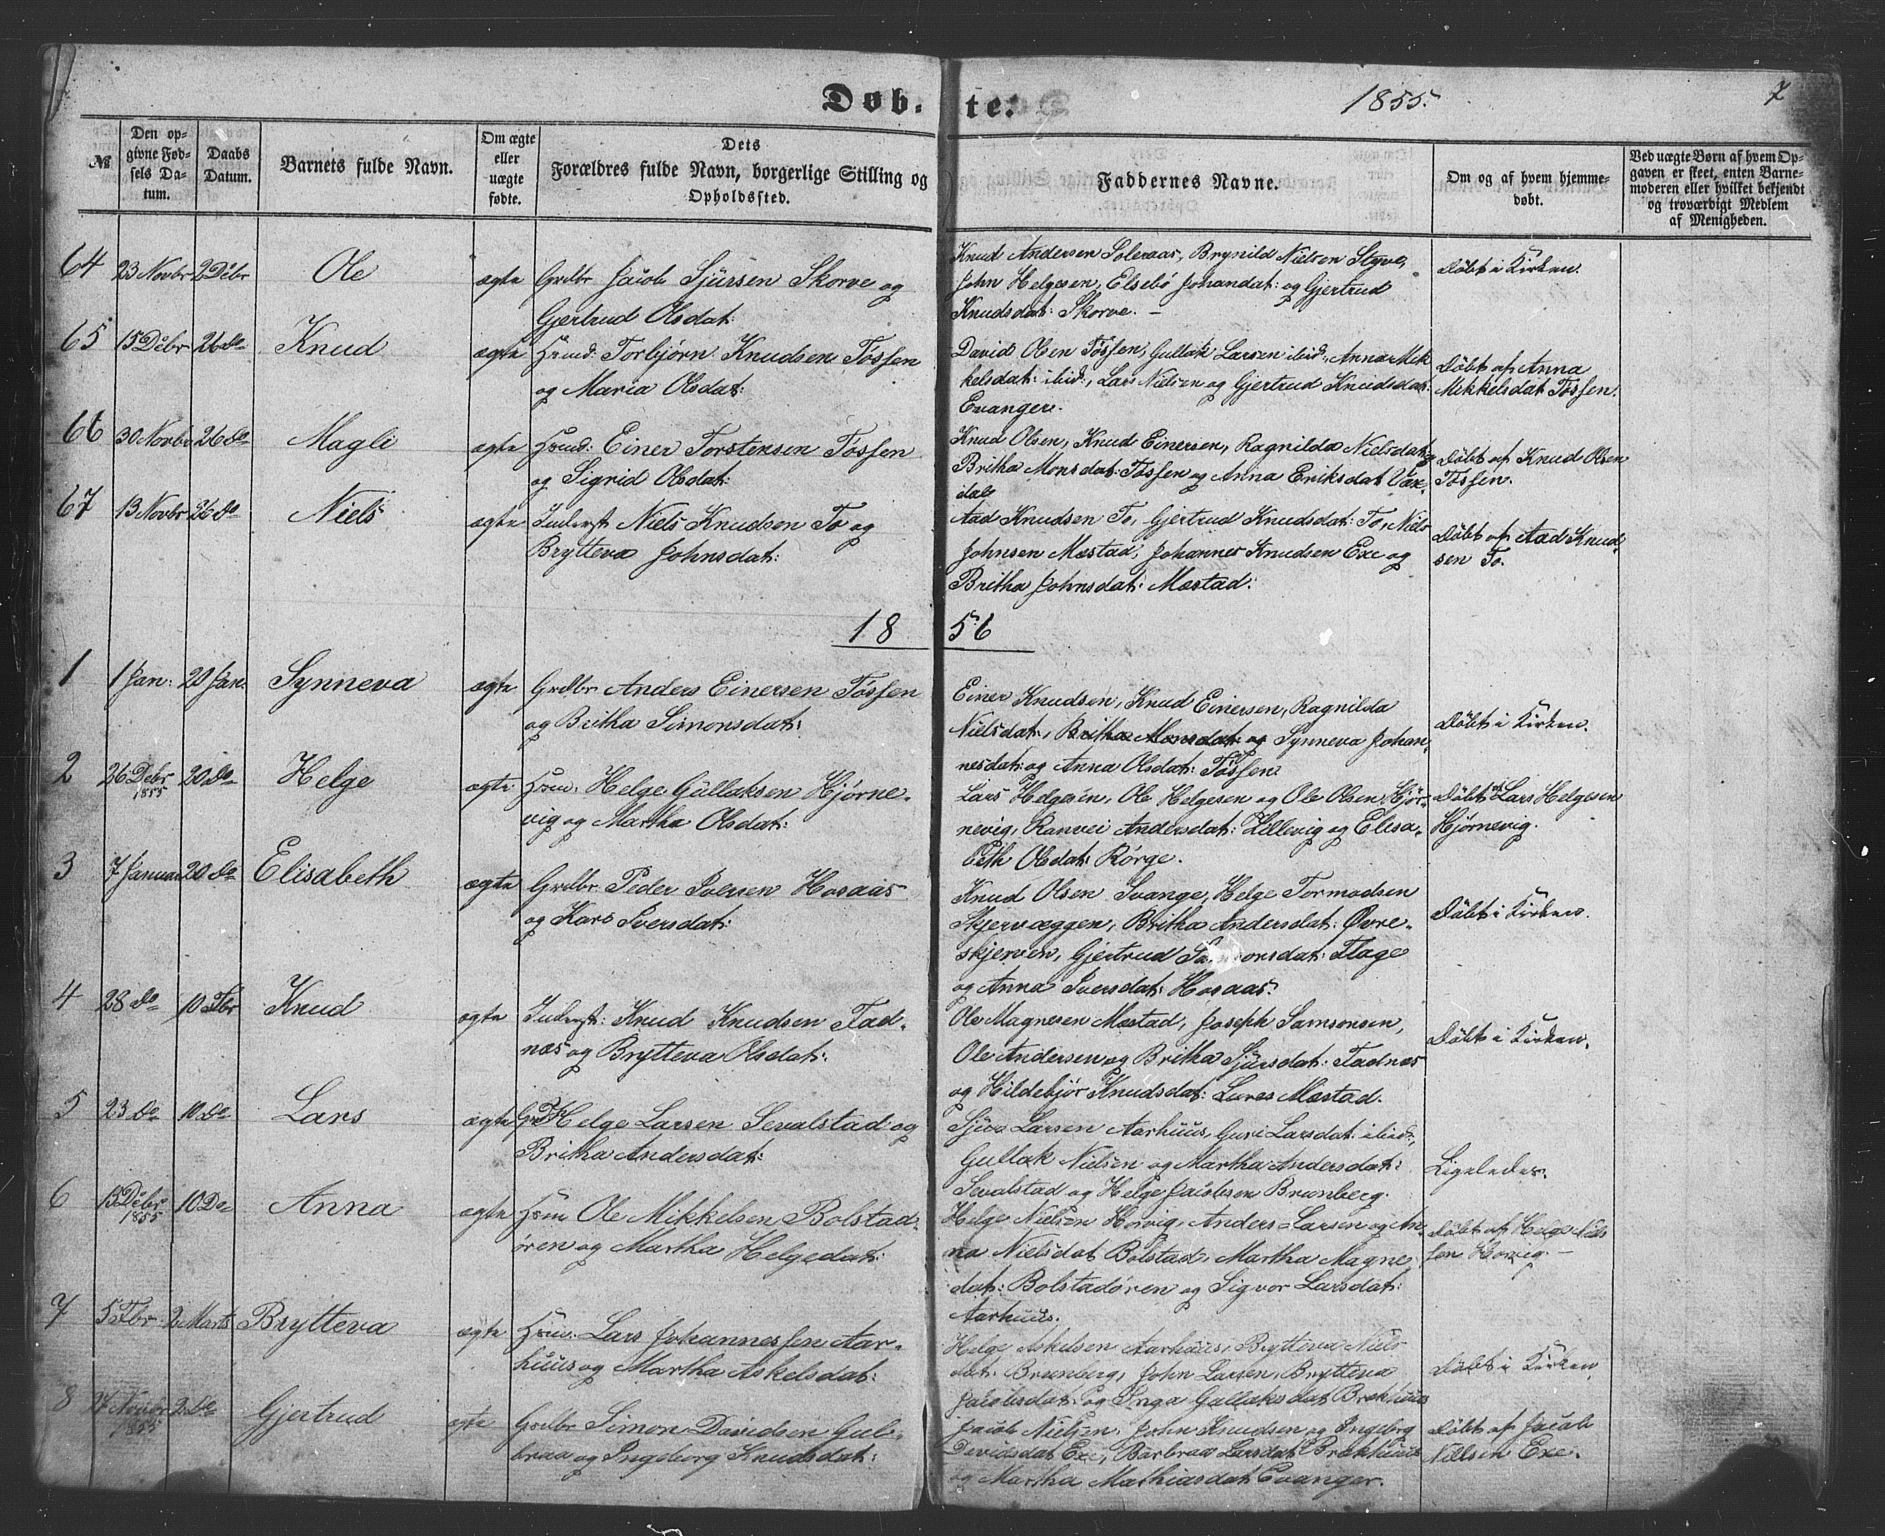 Døb-te. 1855. 7
№
Den opgivne Fødsels Datum.
Daabs Datum.
Barnets fulde Navn.
Om ægte eller uægte fødte.
Dets Forældres fulde Navn, borgerlige Stilling og Opholdssted.
Faddernes Navne.
Om og af hvem hjemmedøbt.
Ved uægte Børn af hvem Opgaven er skeet, enten Barnemoderen eller hvilket bekjendt og troværdigt Medlem af Menigheden.
64 23 Novbr 2 Dcbr Ole ægte Grdbr Jacob Sjursen Skorve og
Gjertrud Olsdat:
Knud Andersen Soleraas, Brynild Nielsen Styve,
John Helgesen, Elsebó Johandat: og Gjertrud
Knudsdat: Skorve. —
Döbt i Kirken.
65 15 Dcbr 26 do Knud ægte Hmd: Torbjörn Knudsen Fóssen
og Maria Olsdat:
David Olsen Fóssen, Gullak Larsen ibid:, Anna Mik
kelsdat: ibid:, Lars Nielsen og Gjertrud Knudsdat:
Evanger.
Döbt af Anna
Mikkelsdat Fóssen.
66 30 Novbr 26 do Magli ægte Hmd: Einer Torstensen Fóssen
og Sigrid Olsdat:
Knud Olsen, Knud Einersen, Ragnilda Nielsdat:
Britha Monsdat: Fóssen og Anna Eriksdat Vax-
dal
Döbt af Knud Olsen
Fóssen.
67 13 Novbr 26 do Niels ægte Inderst Niels Knudsen Fo og
Brytteva Johnsdat:
Aad Knudsen Fo, Gjertrud Knudsdat: Fo, Niels
Johnsen Mæstad, Johannes Knudsen Exe og
Britha Johnsdat: Mæstad:
Döbt af Aad Knud-
sen Fo.
18 56
1 1 Jan: 20 Jan. Synneva ægte Grdbr Anders Einersen Fóssen
og Britha Simonsdat:
Einer Knudsen, Knud Einersen, Ragnilda
Nielsdat:, Britha Monsdat: og Synneva Johan-
nesdat: og Anna Olsdat: Fóssen
Döbt i Kirken.
2 26 Debr 1855 20 do Helge ægte Hmd: Helge Gullaksen Hjórne-
vig og Martha Olsdat:
Lars Helgesen, Ole Helgesen og Ole Olsen Hjór-
nevig, Ranvei Andersdat: Lillevig og Elisa-
beth Olsdat: Rórge.
Döbt af Lars Helgesen
Hjórnevig.
3 7 Januar 20 do Elisabeth ægte Grdbr Peder Iversen Hosaas
og Kari Iversdat:
Knud Olsen Svange, Helge Tormodsen
Skjervæggen, Britha Andersdat: Óvre-
skjerven, Gjertrud Samsonsdat: Flage
og Anna Iversdat: Hosaas.
Döbt i Kirken.
4 28 do 10 Fbr Knud ægte Inderst: Knud Knudsen Fad-
næs og Brytteva Olsdat:
Ole Magnesen Mæstad, Joseph Samsonsen,
Ole Andersen og Britha Sjursdat: Fadnæs
og Hildebjór Knudsdat: Mæstad.
Döbt i Kirken.
5 23 do 10 do Lars ægte Helge Larsen Sevalstad og
Britha Andersdat:
Sjur Larsen Aarhuus, Guri Larsdat: ibid:,
Gullak Nielsen og Martha Andersdat:
Sevalstad og Helge Jacobsen Brunberg.
Ligeledes.
6 13 Dcbr 1855 10 Do Anna ægte Hmd Ole Mikkelsen Bolstad-
óren og Martha Helgedat:
Helge Nielsen Horvig, Anders Larsen og An-
na Nielsdat Bolstad, Martha Magne
dat: Bolstadóren og Sigvor Larsdat:
Aarhuus.
Döbt af Helge Niels
sen Horvig. —
7 5 Fbr 2 Marts Brytteva ægte Hmd: Lars Johannessen Aar-
huus og Martha Askelsdat:
Helge Askelsen Aarhuus, Brytteva Niels
dat: Brunberg, John Larsen, Brytteva
Jacobsdat: og Inga Gullaksdat Brekhuus
Döbt i Kirken.
8 24 Novbr 1855 2 Do Gjertrud ægte Grdbr Simon Davidsen Gul-
braa og Ingborg Knudsdat:
Jacob Nielsen, John Knudsen og Ingeborg
Davidsdat Exe, Barbra Larsdat: Brekhuus
og Martha Mathiasdat Evanger.
Döbt af Jacob
Nielsen Exe.